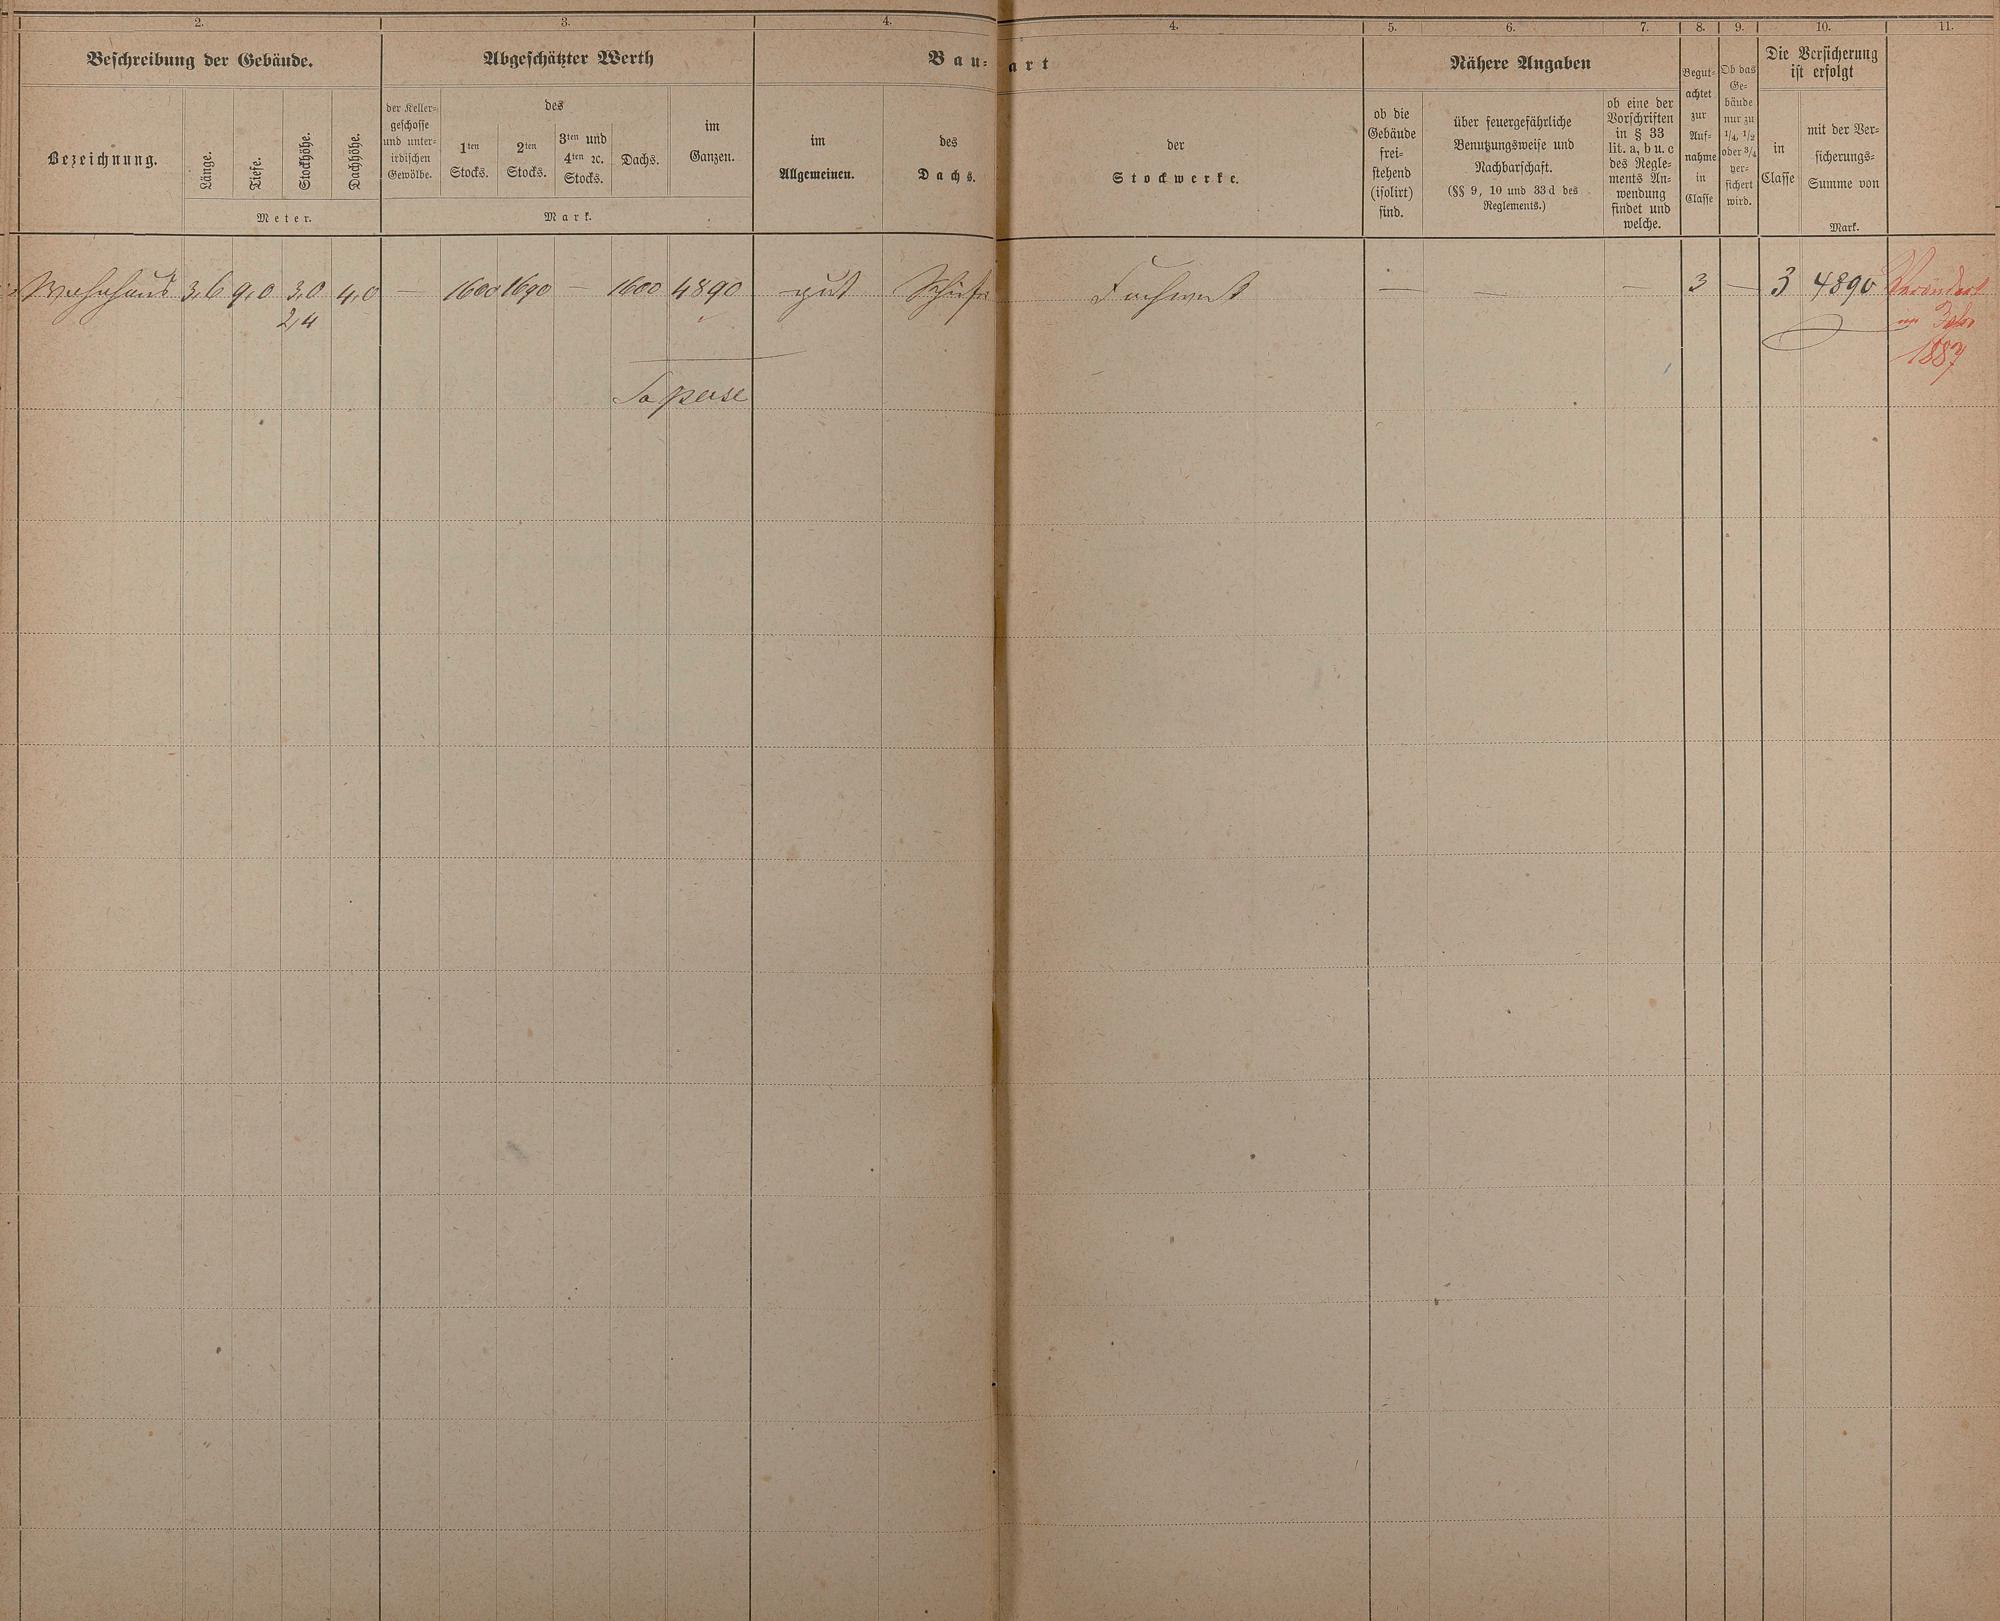 2. 3. 4. 4. 5. 6. 7. 8. 9. 10. 11.
Beschreibung der Gebäude. Abgeschätzter Werth Bau- art Nähere Angaben
Bezeichnung.
Länge.
Tiefe.
Stockhöhe.
Dachhöhe.
Meter.
der Keller-
geschosse
und unter-
irdischen
Gewölbe.
des
1ten
Stocks.
2ten
Stocks.
3ten und
4ten ꝛc.
Stocks.
Dachs.
im
Ganzen.
Mark.
im
Allgemeinen.
des
Dachs.
der
Stockwerke.
ob die
Gebäude
frei-
stehend
(isolirt)
sind.
über feuergefährliche
Benutzungsweise und
Nachbarschaft.
(§§ 9, 10 und 33d des
Reglements.)
ob eine der
Vorschriften
in § 33
lit. a, b u. c
des Regle-
ments An-
wendung
findet und
welche.
Begut-
achtet
zur
Auf-
nahme
in
Classe
Ob das
Ge-
bäude
nur zu
1/4, 1/2
oder 3/4
ver-
sichert
wird.
Die Versicherung
ist erfolgt
in
Classe
mit der Ver-
sicherungs-
Summe von
Mark.
Wohnhaus 3,6 9,0 3,0 4,0 — 1600 1690 — 1600 4890 gut Schiefer Fachwerk — — — 3 — 3 4890 Verändert
2,4 im Jahr
1887
So per se